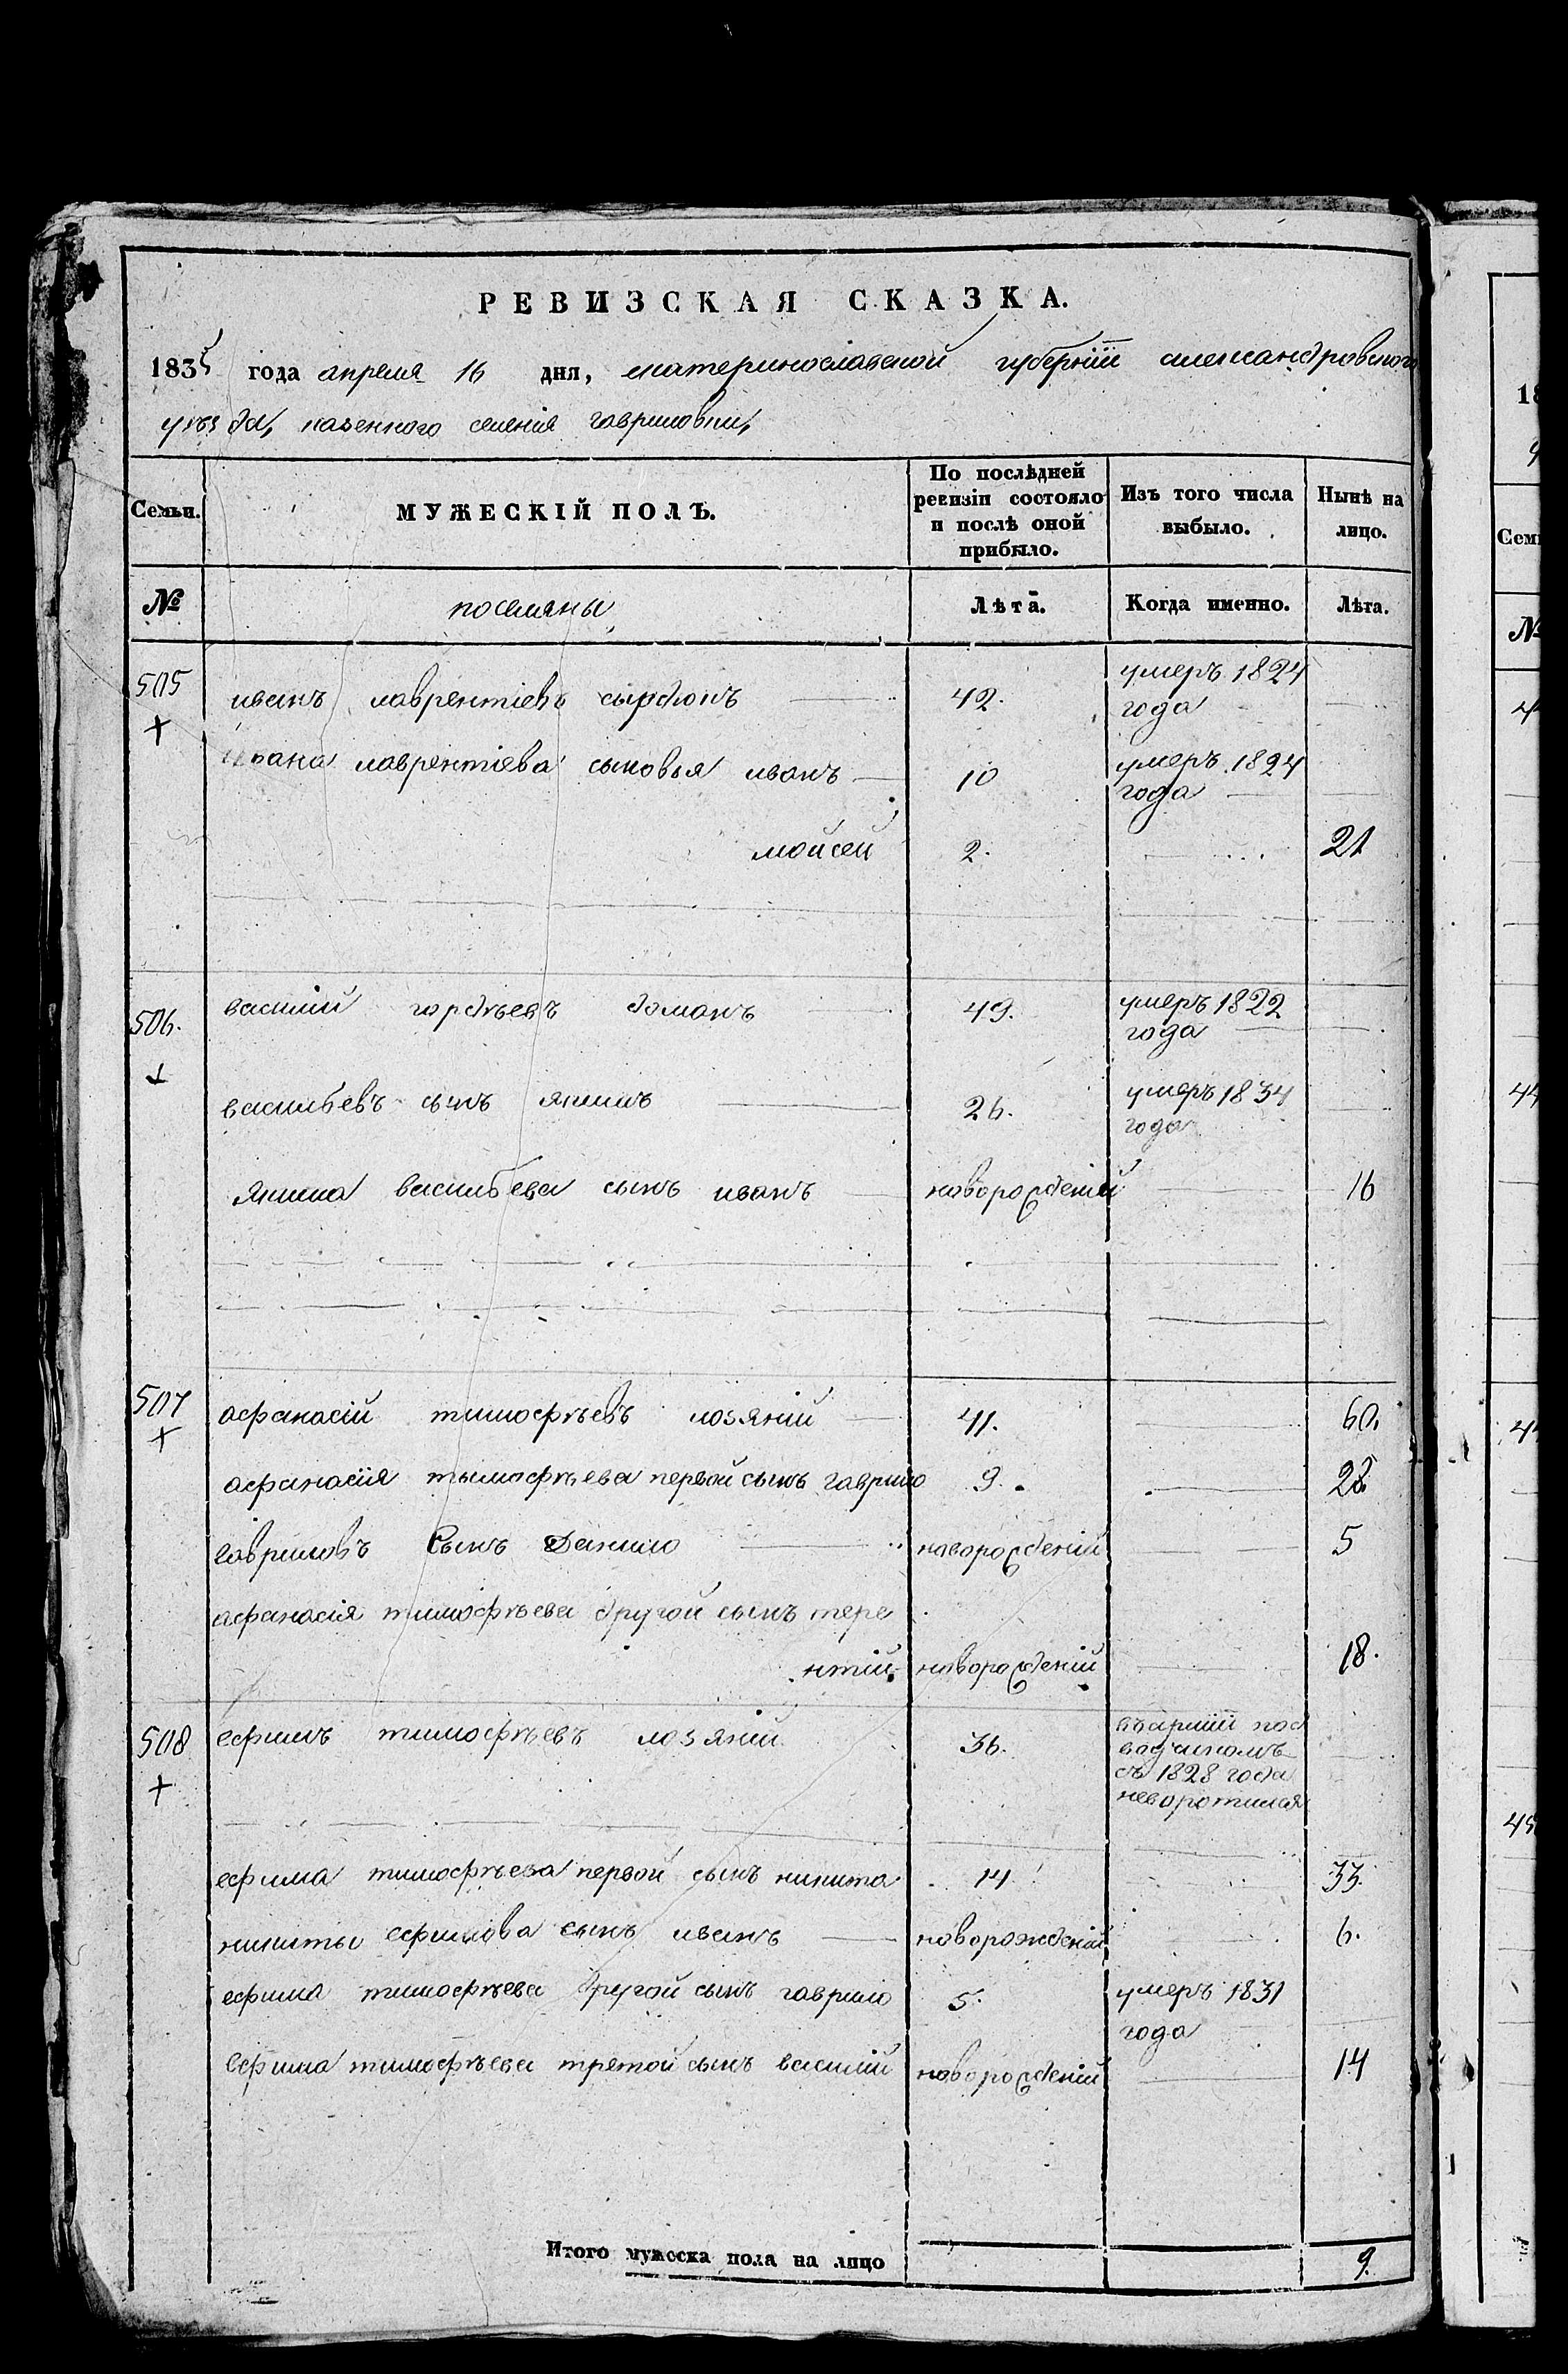 РЕВИЗСКАЯ СКАЗКА.
1835 года апреля 16 дня, екатеринославской губерніи александровского
уѣзда, казенного селенія гавриловки,
Семьи. МУЖЕСКІЙ ПОЛЪ. По послѣдней ревизіи состояло и послѣ оной прибыло. Изъ того числа выбыло. Нынѣ на лицо.
№ поселяны Лѣта. Когда именно. Лѣта.
505 иванъ лаврентіевъ сырдюкъ 42. умеръ 1824 года
ивана лаврентіева сыновья иванъ 10 умеръ 1824 года
мойсей 2. 21
506. василій гордѣевъ доманъ 49. умеръ 1822 года
васильевъ сынъ якимъ 26. умеръ 1834 года
якима васильева сынъ иванъ новорожденій 16
507 афанасій тимофѣевъ лозяній 41. 60.
афанасія тымофѣева первой сынъ гаврило 9. 28
гавриловъ сынъ данило новорожденій 5
афанасія тимофѣева другой сынъ тере
нтій новорожденій 18.
508 ефимъ тимофѣевъ лозяній 36. въ арміи под
съ 1828 года
неворотился
ефима тимофѣева первой сынъ никита 14. 33.
никиты ефимова сынъ иванъ новорожденій 6.
ефима тимофѣева другой сынъ гаврило 5. умеръ 1831 года
ефима тимофѣева третой сынъ василій новорожденій 14
Итого мужеска пола на лицо 9.
18
Сем
№